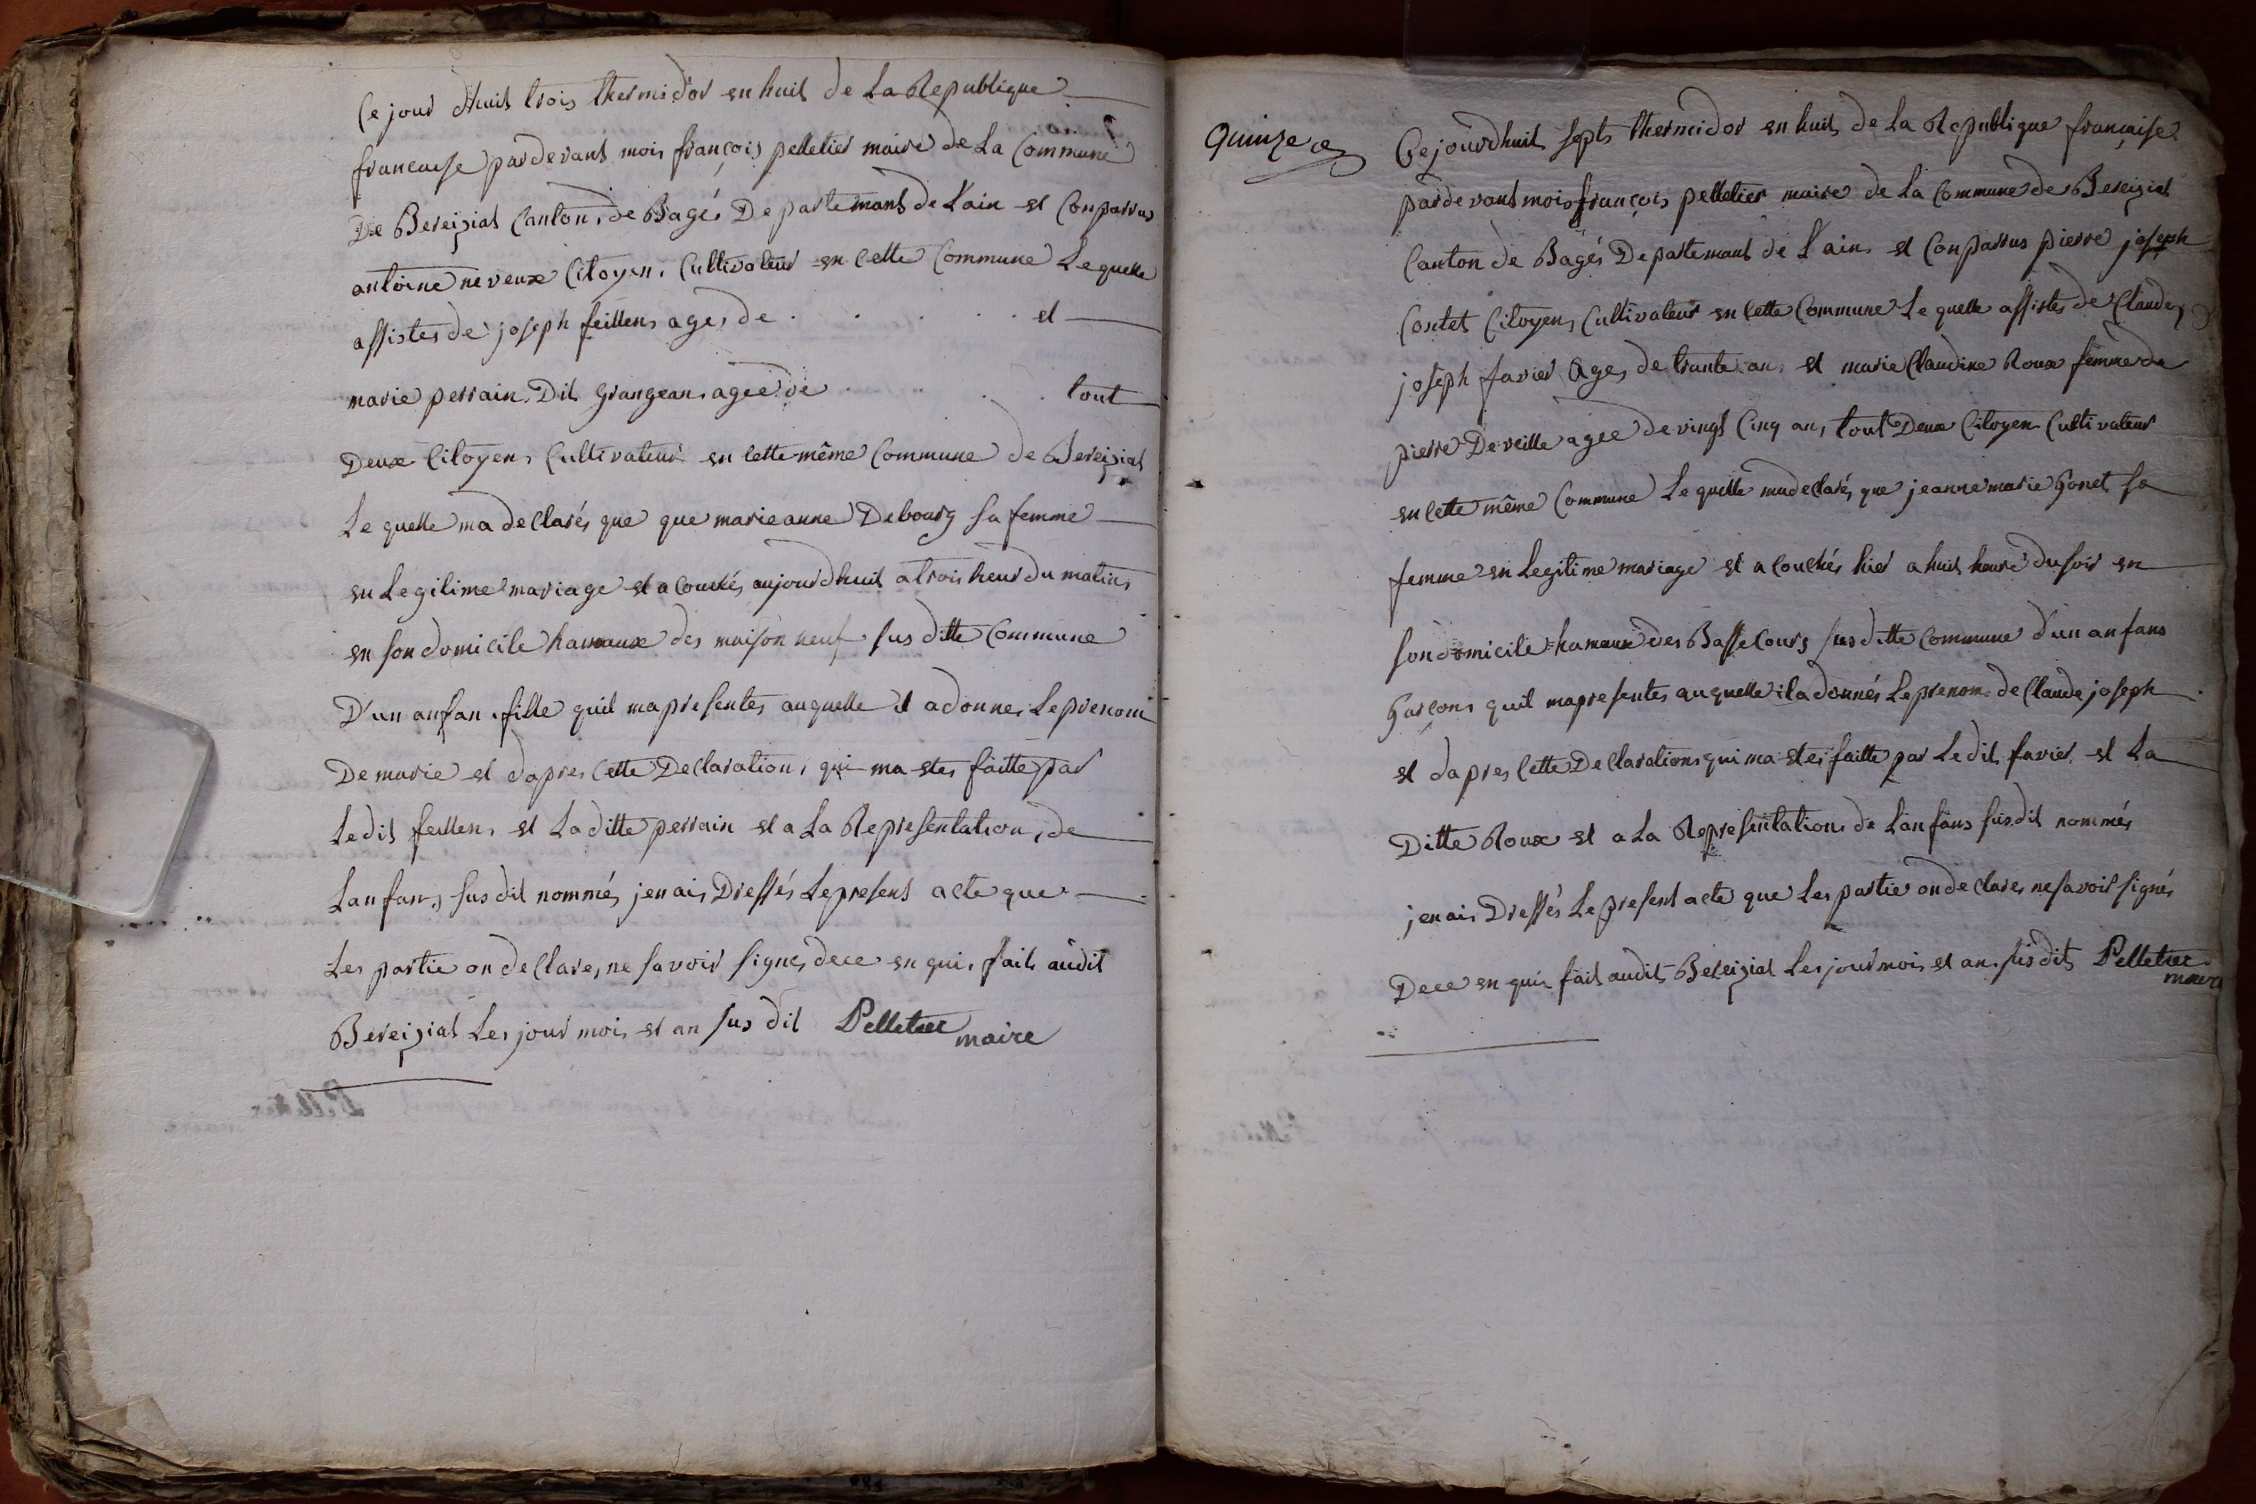 Ce jour dhuit trois thermidor en huit de La Republique
francaise pardevant mois françois pelletier maire de La Commune
De Bereiziat Canton de Bagés Departemant de L'ain est Conparrus
antoine neveux Citoyen Cultivateur en Cette Commune Le quelle
assistes de joseph feillens ages de . . . . . et
marie perrain Dit grangean agee de . . . tout
Deux Citoyens Cultivateur en Cette même Commune de Bereiziat
Le quelle ma declarés que que marieanne Debourg sa femme
en Legitime mariage et acouchés aujourdhuit a trois heur du matins
en son domicile hameaux des maison neuf sus ditte Commune
D'un anfan fille quil mapresentes auquelle il adonnes Leprenom
De marie et dapres Cette Declaration qui ma etes faitte par
Ledit feillens et La ditte perrain et a La Representation de
Lanfans sus dit nommés jenais Dressés Lepresent acte que
Les partie on declares ne savoir signes dece en quis fait audit
Bereiziat Les jour mois et an sus dit Pelletier
maire
Quinze
Cejourdhuit septs thermidor en huit de La Republique francaise
pardevant mois françois pelletier maire de La Commune de Bereiziat
Canton de Bagés Departemant de L'ain et Conparrus pierre joseph
Contet Citoyens Cultivateur en Cette Commune Le quelle assistes de Claude
joseph favier Ages de trante ans et marie Claudine Roux femme de
pierre Deveille agee de vingt Cinq ans tout Deux Citoyen Cultivateur
en Cette même Commune Le quelle madeclarés que jeanne marie Gonet sa
femme en Legitime mariage et acouchés hier a huit heure du soir en
son domicile hameaux des Basse Cours sus ditte Commune d'un anfans
Garçons quil mapresentes auquelle iladonnés Leprenom de Claude joseph
et dapres Cette Declarations qui ma etes faitte par Ledit favier et La
Ditte Roux et a La Representation de Lanfans susdit nommés
jenais Dressés Lepresent acte que Les partie ondeclares nesavoir signés
Dece en quis fait audit Bereiziat Les jour mois et an susdits Pelletier
maire